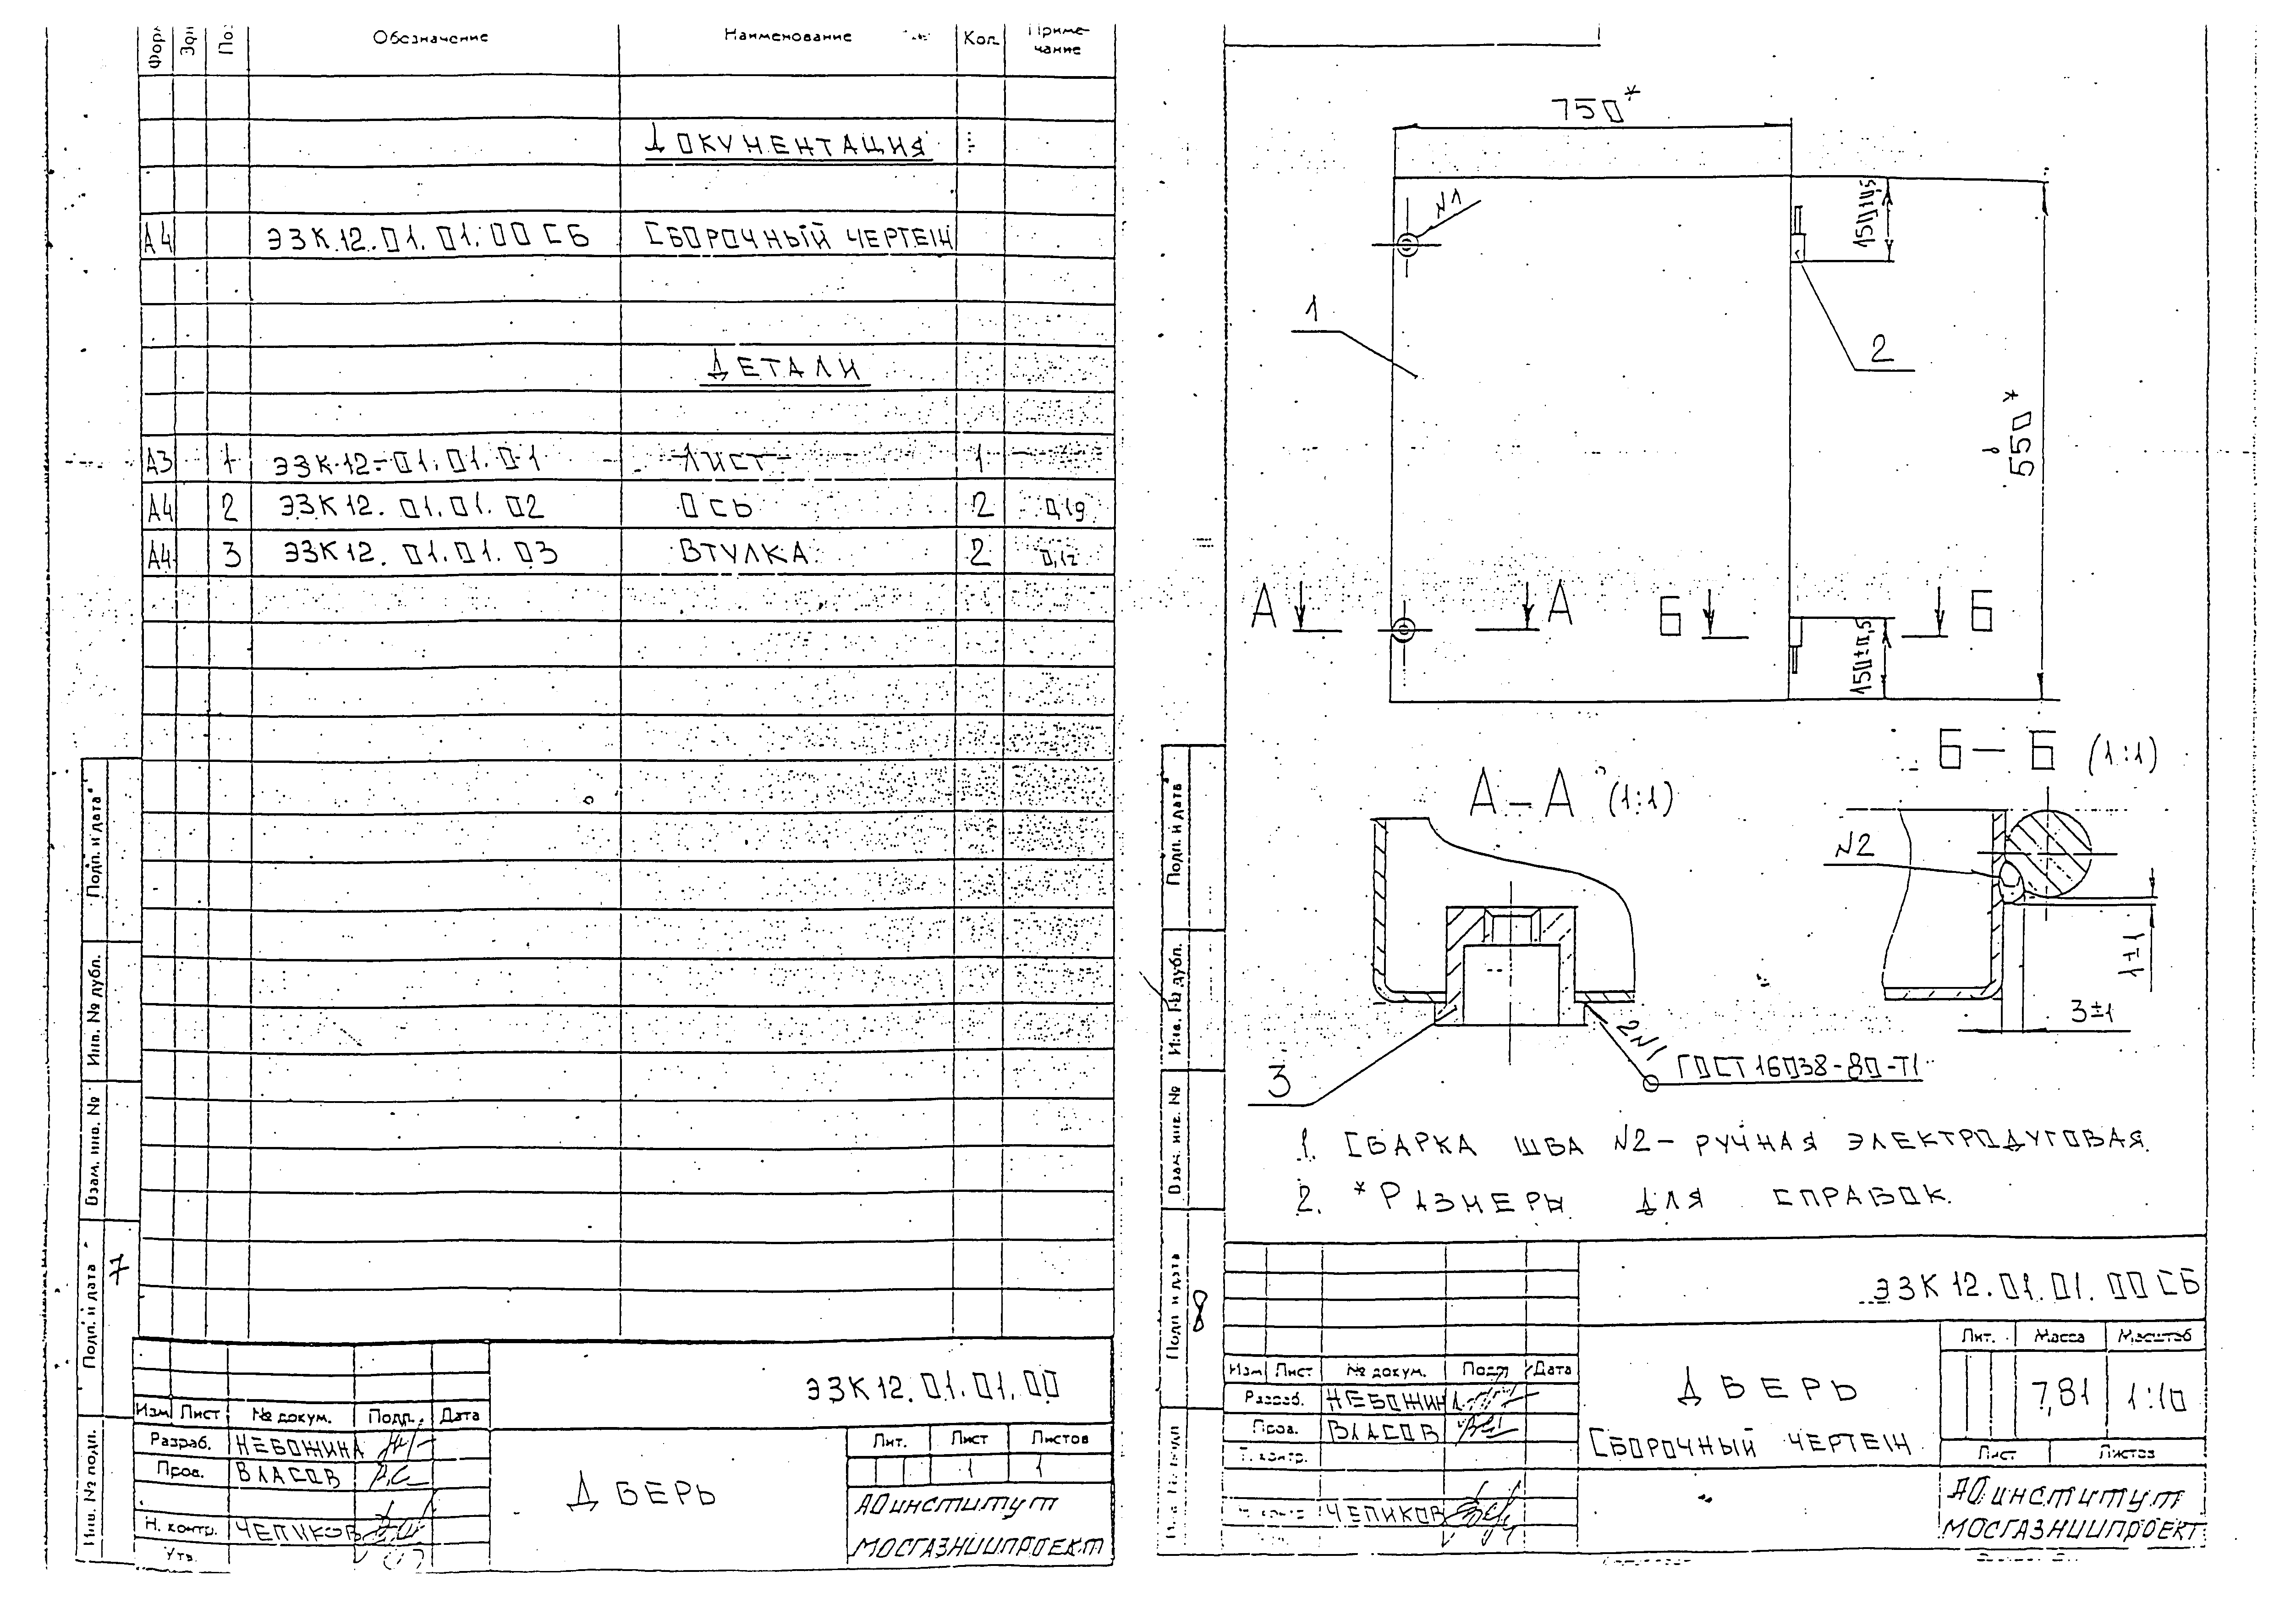 Обозначение Наименование Кол. Приме-
чание
ДОКУМЕНТАЦИЯ
А4 ЭЗК.12.01.01.00 СБ СБОРОЧНЫЙ ЧЕРТЕЖ
ДЕТАЛИ
А3 1 ЭЗК.12-01.01.01 ЛИСТ 1
А4 2 ЭЗК12.01.01.02 ОСЬ 2
А4 3 ЭЗК12.01.01.03 ВТУЛКА 2
Подп. и дата
Инв. № дубл.
Взам. инв. №
Подп. и дата
Инв. № подп.
7
ЭЗК12.01.01.00
Изм Лист № докум. Подп. Дата
Разраб. НЕБОЖИНА
Пров. ВЛАСОВ
Н. контр. ЧЕПИКОВ
Утв.
ДВЕРЬ
Лит. Лист Листов
1 1
АО институт
МОСГАЗНИИПРОЕКТ
750*
N1
150±0,5
1
2
550*
А А Б Б
150±0,5
Б – Б (1:1)
А – А (1:1)
N2
1±1
3±1
2N1
ГОСТ 16038-80-Т1
3
1. СВАРКА ШВА N2 – РУЧНАЯ ЭЛЕКТРОДУГОВАЯ.
2. *РАЗМЕРЫ ДЛЯ СПРАВОК.
Подп. и дата
Инв. № дубл.
Взам. инв. №
Подп. и дата
8
ЭЗК12.01.01.00 СБ
Изм Лист № докум. Подп Дата
Разраб. НЕБОЖИНА
Пров. ВЛАСОВ
Т. контр.
ЧЕПИКОВ
ДВЕРЬ
СБОРОЧНЫЙ ЧЕРТЕЖ
Лит. Масса Масштаб
7,81 1:10
Лист Листов
АО институт
МОСГАЗНИИПРОЕКТ